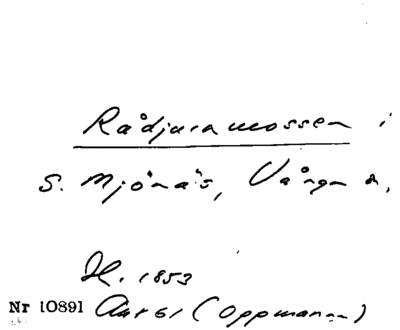 Rådjuramossen i
S. Mjönäs, Vånga sn.
H. 1853
Nr 10891 (Oppmanna)